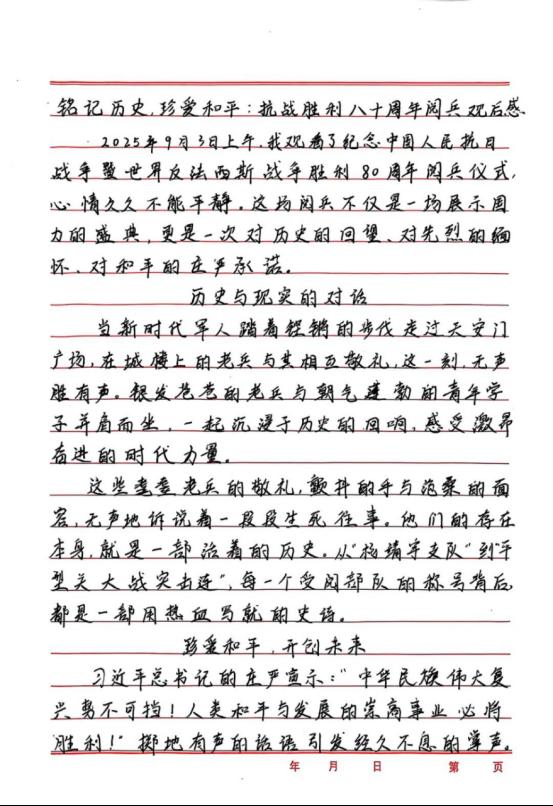 铭记历史,珍爱和平:抗战胜利八十周年阅兵观后感
2025年9月3日上午,我观看了纪念中国人民抗日
战争暨世界反法西斯战争胜利80周年阅兵仪式,
心情久久不能平静。这场阅兵不仅是一场展示国
力的盛典,更是一次对历史的回望、对先烈的缅
怀、对和平的庄严承诺。
历史与现实的对话
当新时代军人踏着铿锵的步伐走过天安门
广场,在城楼上的老兵与其相互敬礼,这一刻,无声
胜有声。银发苍苍的老兵与朝气蓬勃的青年学
子并肩而坐,一起沉浸于历史的回响,感受激昂
奋进的时代力量。
这些耄耋老兵的敬礼,颤抖的手与沧桑的面
容,无声地诉说着一段段生死往事。他们的存在
本身,就是一部活着的历史。从“杨靖宇支队”到“平
型关大战突击连”,每一个受阅部队的称号背后,
都是一部用热血写就的史诗。
珍爱和平,开创未来
习近平总书记的庄严宣示:“中华民族伟大复
兴势不可挡!人类和平与发展的崇高事业必将
胜利!”掷地有声的话语引发经久不息的掌声。
年 月 日 第 页